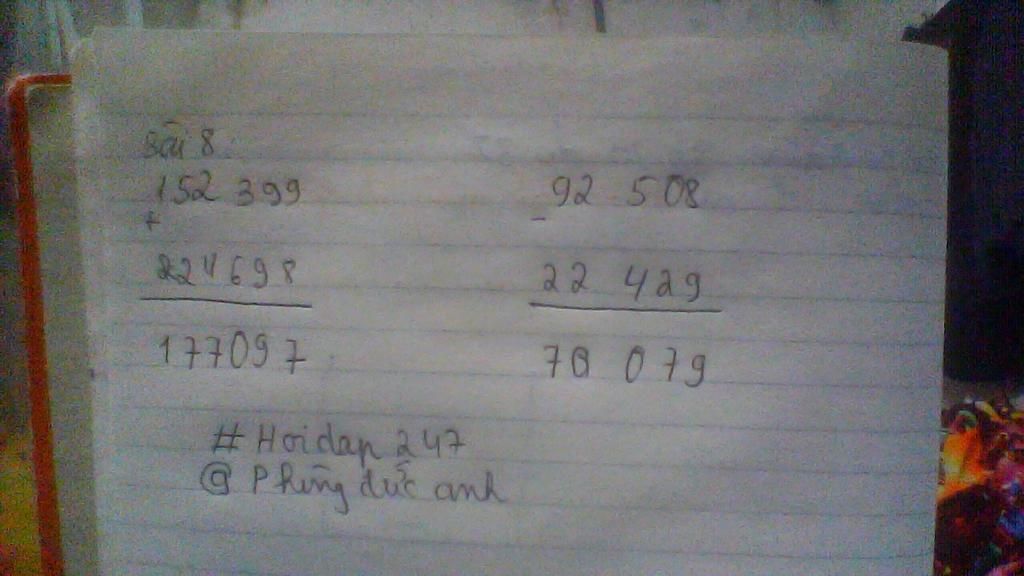 Bài 8:
152 399
+
224698
177097
92 508
-
22 429
70 079
# Hoidap 247
@ Phùng đức anh